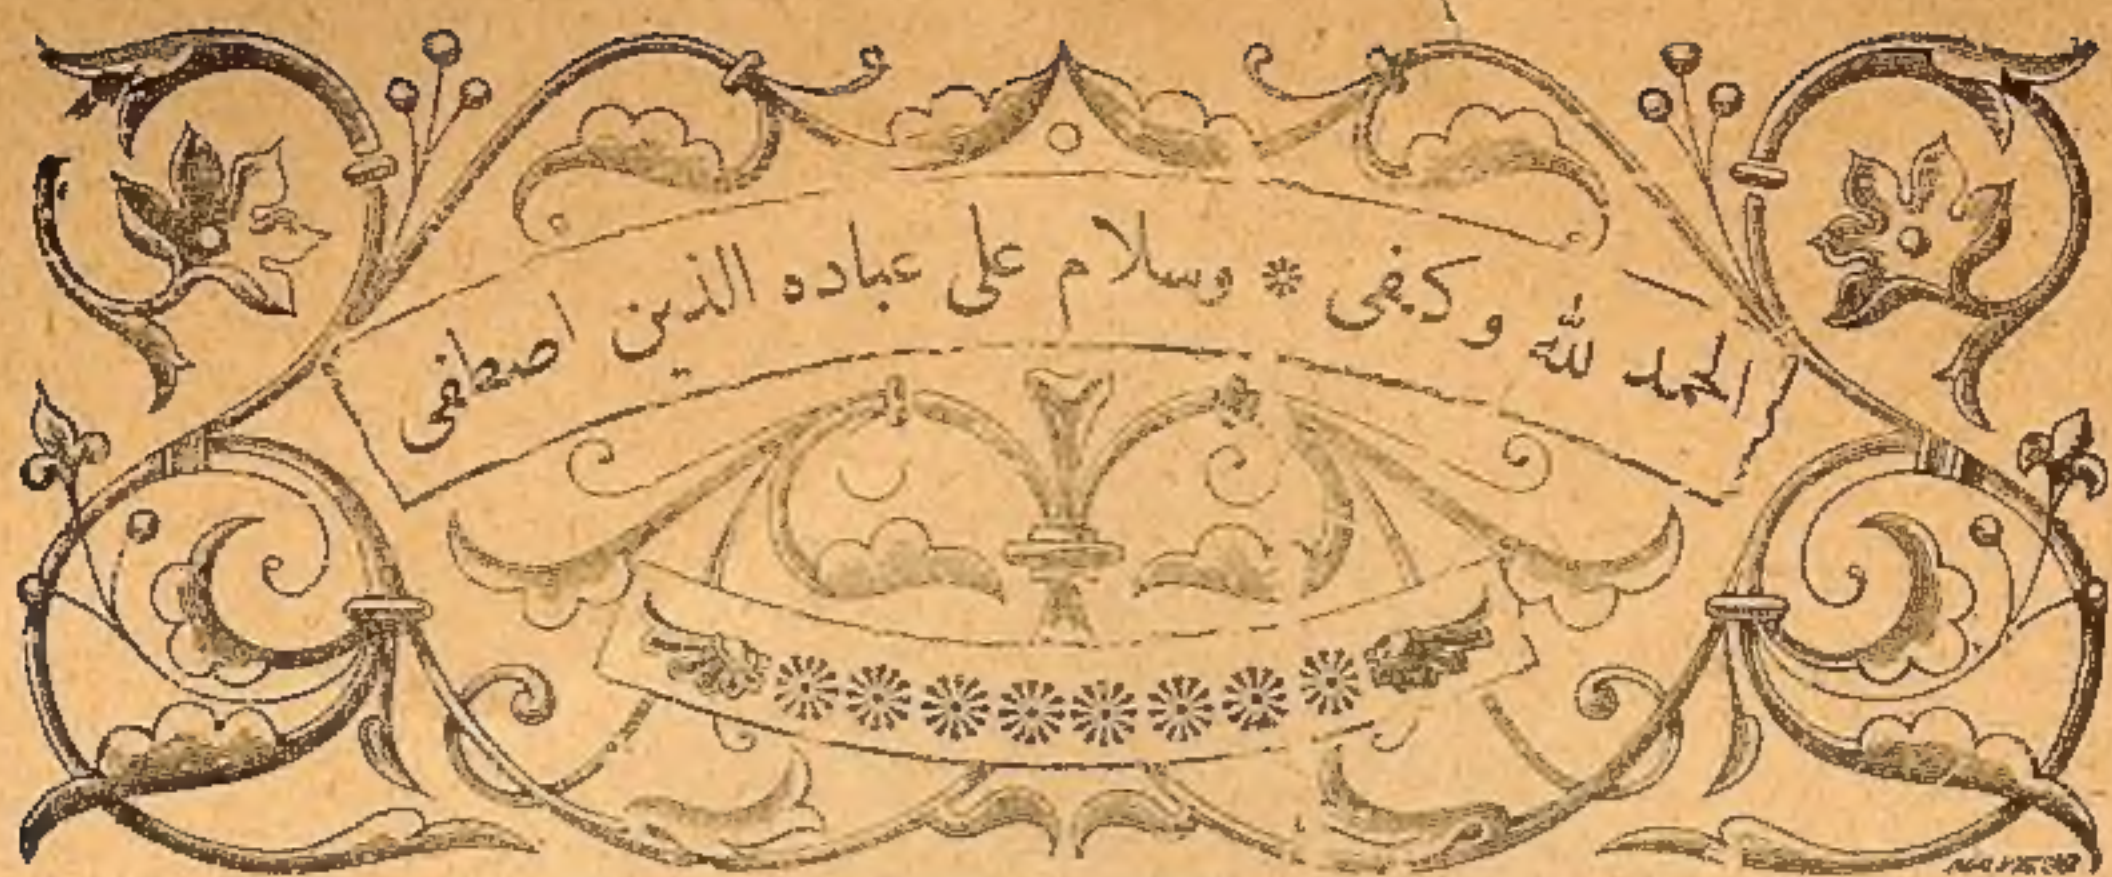 الحمد لله وكفى * وسلام على عباده الذين اصطفى